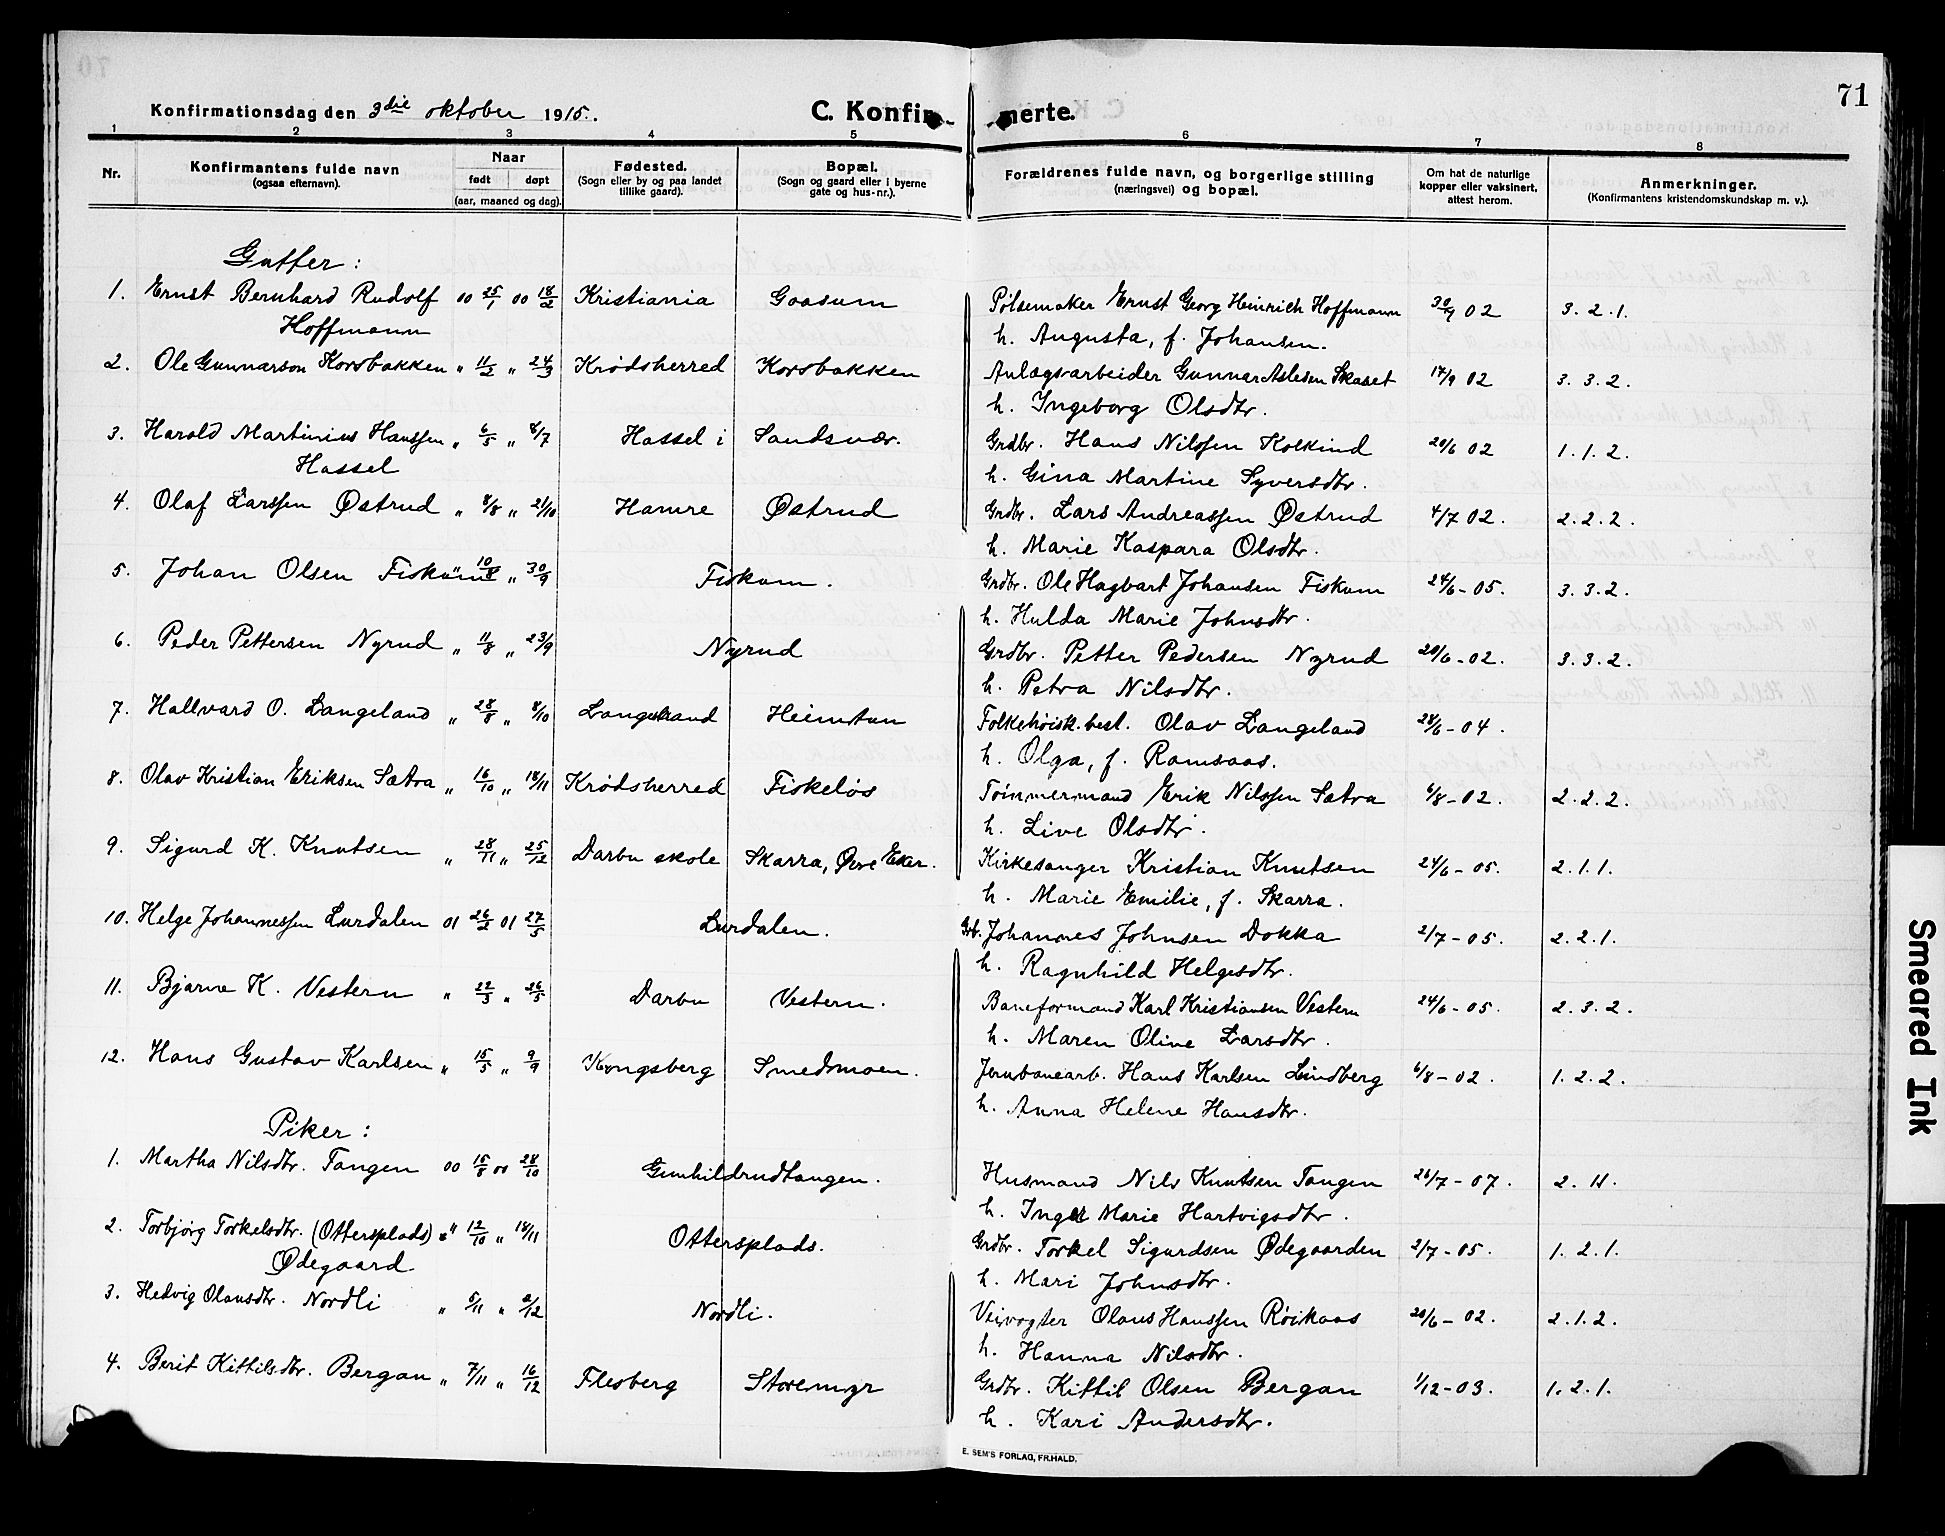 71
Konfirmationsdag den 3die oktober 1915.
C. Konfir- merte.
1 2 3 4 5 6 7 8
Nr. Konfirmantens fulde navn (ogsaa efternavn). Naar født døpt (aar, maaned og dag). Fødested. (Sogn eller by og paa landet tillike gaard). Bopæl. (Sogn og gaard eller i byerne gate og hus-nr.). Forældrenes fulde navn, og borgerlige stilling (næringsvei) og bopæl. Om hat de naturlige kopper eller vaksinert, attest herom. Anmerkninger. (Konfirmantens kristendomskundskap m. v.).
Gutter:
1. Ernst Bernhard Rudolf 00 25/1 00 18/2 Kristiania Goasum Pølsemaker Ernst Georg Heinrich Hoffmann 30/9 02 3. 2. 1.
Hoffmann h. Augusta, f. Johansen.
2. Ole Gunnarson Korsbakken " 11/2 " 24/3 Krødsherred Korsbakken Anlægsarbeider Gunnar Aslesen Skaset 17/9 02 3. 3. 2.
h. Ingeborg Olsdtr.
3. Harald Martinius Hanssen " 6/5 " 8/7 Hassel i Sandsvær. Grdbr. Hans Nilssen Kolkind 20/6 02 1. 1. 2.
Hassel h. Gina Martine Syversdtr.
4. Olaf Larssen Østrud " 8/8 " 21/10 Hamre Østrud Grdbr. Lars Andreassen Østrud 4/7 02. 2. 2. 2.
h. Marie Kaspara Olsdtr.
5. Johan Olsen Fiskum " 10/8 " 30/9 Fiskum. Grdbr. Ole Hagbart Johansen Fiskum 24/6 - 05. 3. 3. 2.
h. Hulda Marie Johnsdtr.
6. Peder Pettersen Nyrud " 11/8 " 23/9 Nyrud Grdbr. Petter Pedersen Nyrud 20/6 - 02. 3. 3. 2.
h. Petra Nilsdtr.
7. Hallvard O. Langeland " 28/8 " 8/10 Langestrand Heimtun Folkehøisk. best. Olav Langeland 28/6 - 04.
h. Olga, f. Ramsaas.
8. Olav Kristian Eriksen Sætra " 16/10 " 18/11 Krødsherred Fiskeløs Tømmermand Erik Nilssen Sætra 6/8 - 02. 2. 2. 2.
h. Live Olsdtr.
9. Sigurd K. Knutsen " 28/11 " 25/12 Darbu skole Skarra, Øvre Eker. Kirkesanger Kristian Knutsen 24/6 - 05. 2. 1. 1.
h. Marie Emilie, f. Skarra.
10. Helge Johannessen Lurdalen 01 26/2 01 27/5 Lurdalen. Grb. Johannes Johnsen Dokka 2/7 - 05. 2. 2. 1.
h. Ragnhild Helgesdtr.
11. Bjarne K. Vestern " 22/3 " 26/5 Darbu Vestern. Baneformand Karl Kristiansen Vestern 24/6 - 05. 2. 3. 2.
h. Maren Oline Larsdtr.
12. Hans Gustav Karlsen " 15/5 " 9/9 Kongsberg Smedsmoen. Jernbanearb. Hans Karlsen Lundberg 6/8 - 02. 1. 2. 2.
h. Anna Helene Hansdtr.
Piker:
1. Martha Nilsdtr. Tangen 00 15/8 00 28/10 Gunhildrudtangen. Husmand Nils Knutsen Tangen 26/7 - 07. 2. 11.
h. Inger Marie Hartvigsdtr.
2. Torbjørg Torkelsdtr. (Ottersplads) " 12/10 " 18/11 Ottersplads. Grdbr. Torkel Sigurdsen Ødegaarden 2/7 - 05. 1. 2. 1.
Ødegaard h. Mari Johnsdtr.
3. Hedvig Olausdtr. Nordli " 5/11 " 2/12 Nordli. Veivogter Olaus Hanssen Røikaas 20/6 - 02. 2. 1. 2.
h. Hanna Nilsdtr.
4. Berit Kittilsdtr. Bergan " 7/11 " 16/12 Flesberg Storemyr Grdbr. Kittil Olsen Bergan 1/12 - 03. 1. 2. 1.
h. Kari Andersdtr.
E. SEM'S FORLAG, FR.HALD.
Smeared Ink